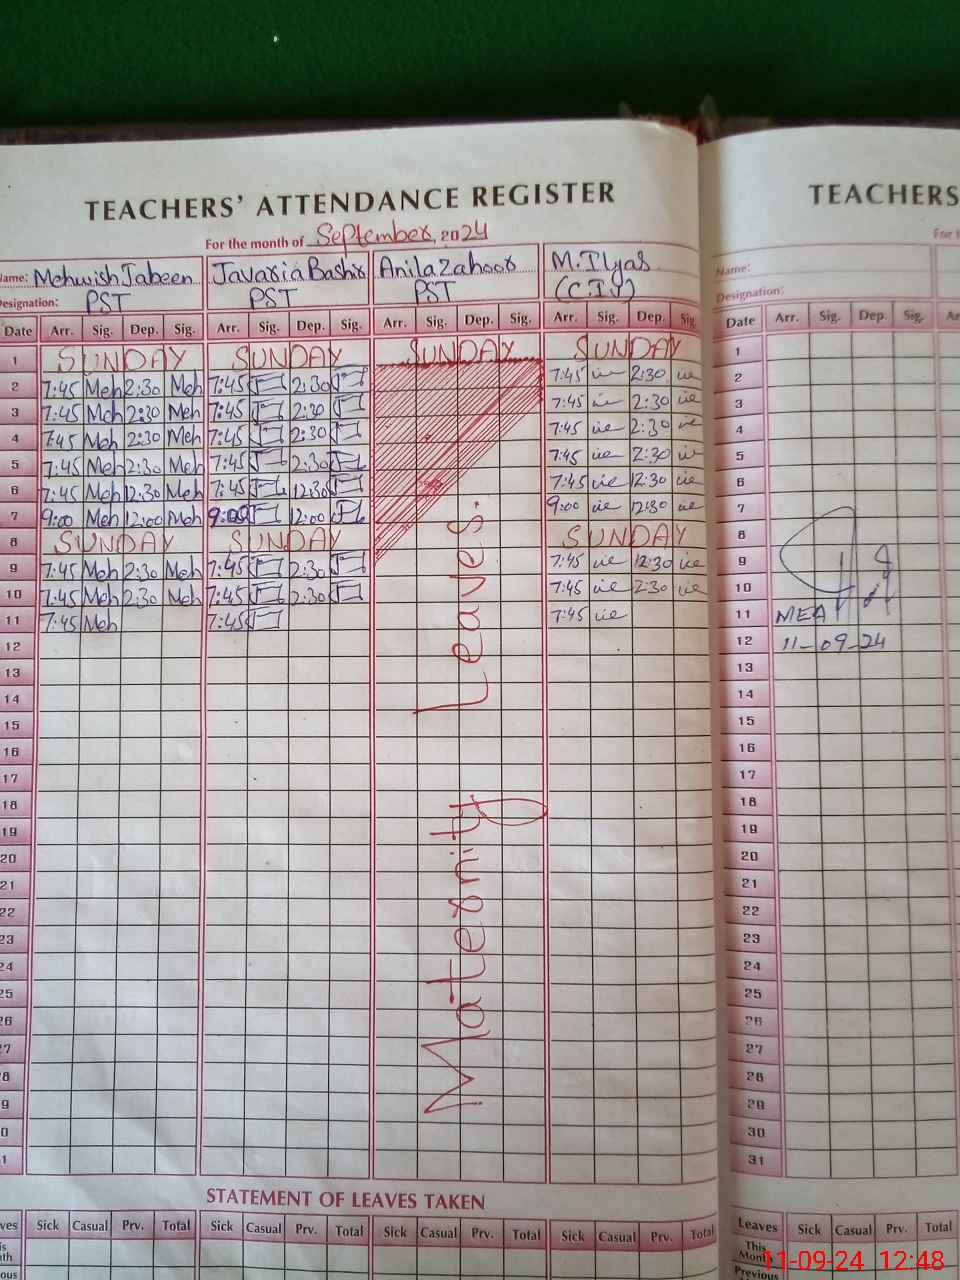 TEACHERS' ATTENDANCE REGISTER
For the month of September, 2024
Name: Mehwish Jabeen Javaria Bashir Anila Zahoor M. Ilyas
Designation: PST PST PST (C.IV)
Date Arr. Sig. Dep. Sig. Arr. Sig. Dep. Sig. Arr. Sig. Dep. Sig. Arr. Sig. Dep. Sig.
1 SUNDAY SUNDAY SUNDAY SUNDAY
2 7:45 Meh 2:30 Meh 7:45 2:30 7:45 2:30
3 7:45 Meh 2:30 Meh 7:45 2:30 7:45 2:30
4 7:45 Meh 2:30 Meh 7:45 2:30 7:45 2:30
5 7:45 Meh 2:30 Meh 7:45 2:30 7:45 2:30
6 7:45 Meh 12:30 Meh 7:45 12:30 7:45 12:30
7 9:00 Meh 12:00 Meh 9:00 12:00 9:00 12:30
8 SUNDAY SUNDAY SUNDAY
9 7:45 Meh 2:30 Meh 7:45 2:30 7:45 12:30
10 7:45 Meh 2:30 Meh 7:45 2:30 7:45 2:30
11 7:45 Meh 7:45 7:45
12
13
14
15
16
17
18
19
20
21
22
23
24
25
26
27
8
9
0
1
Maternity Leaves.
STATEMENT OF LEAVES TAKEN
Sick Casual Prv. Total Sick Casual Prv. Total Sick Casual Prv. Total Sick Casual Prv. Total
TEACHERS
Name:
Designation:
Date Arr. Sig. Dep. Sig.
1
2
3
4
5
6
7
8
9
10
11 MEA
12 11-09-24
13
14
15
16
17
18
19
20
21
22
23
24
25
26
27
28
29
30
31
Leaves Sick Casual Prv. Total
This
Month
Previous
11-09-24 12:48